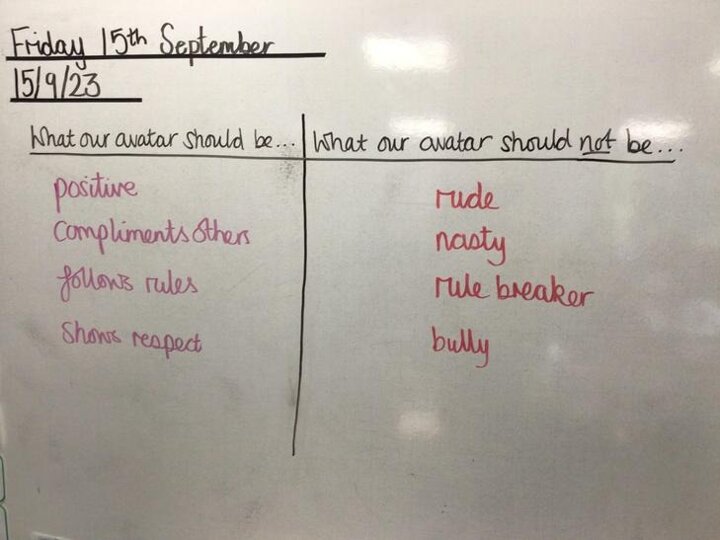 Friday 15th September
15/9/23
What our avatar should be...
positive
compliments others
follows rules
shows respect
What our avatar should not be...
rude
nasty
rule breaker
bully